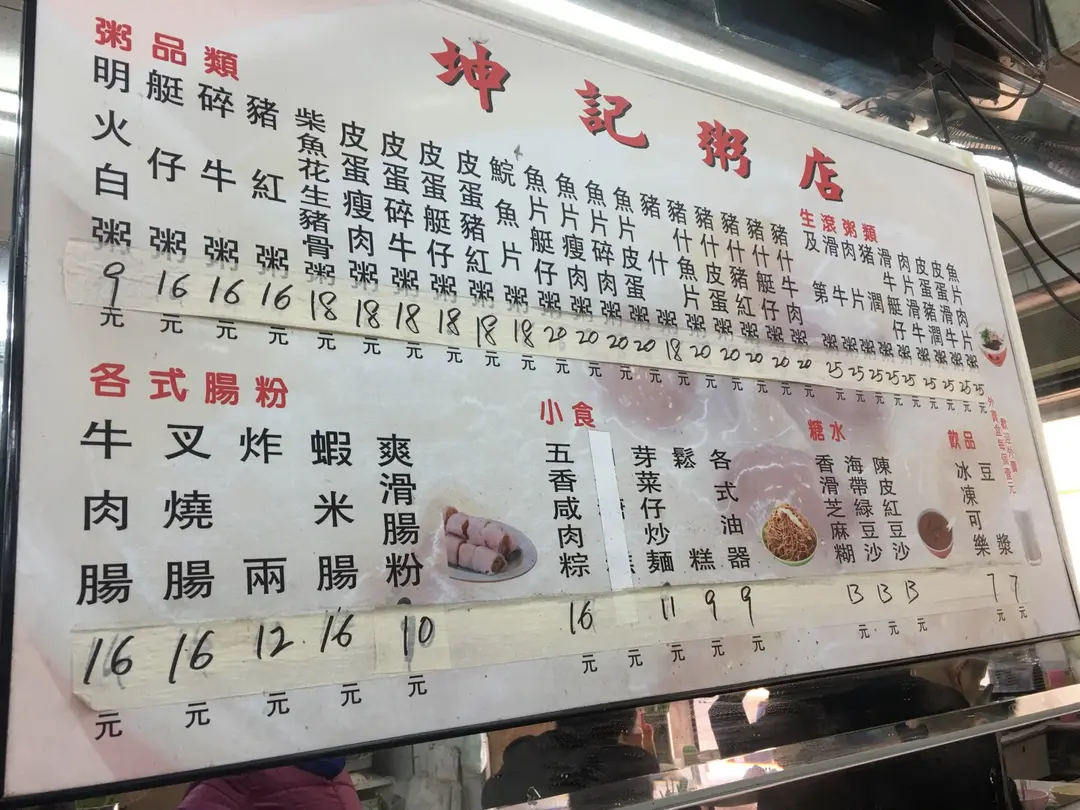 坤記粥店
粥品類
明火白粥 9元
艇仔粥 16元
碎牛粥 16元
豬紅粥 16元
柴魚花生豬骨粥 18元
皮蛋瘦肉粥 18元
皮蛋碎牛粥 18元
皮蛋艇仔粥 18元
皮蛋豬紅粥 18元
鯇魚片粥 18元
魚片艇仔粥 20元
魚片瘦肉粥 20元
魚片碎肉粥 20元
魚片皮蛋粥 20元
豬什粥 18元
豬什魚片粥 20元
豬什皮蛋粥 20元
豬什豬紅粥 20元
豬什艇仔粥 20元
豬什牛肉粥 20元
生滾粥類
及第粥 25元
滑牛粥 25元
肉片粥 25元
猪潤粥 25元
滑牛艇仔粥 25元
肉片滑牛粥 25元
皮蛋豬潤粥 25元
皮蛋滑牛粥 25元
魚片肉片粥 25元
歡迎外賣
外賣盒每個壹元
各式腸粉
牛肉腸 16元
叉燒腸 16元
炸兩 12元
蝦米腸 16元
爽滑腸粉 10元
小食
五香咸肉粽 16元
元
芽菜仔炒麵 11元
鬆糕 9元
各式油器 9元
糖水
香滑芝麻糊 13元
海帶綠豆沙 13元
陳皮紅豆沙 13元
飲品
冰凍可樂 7元
豆漿 7元